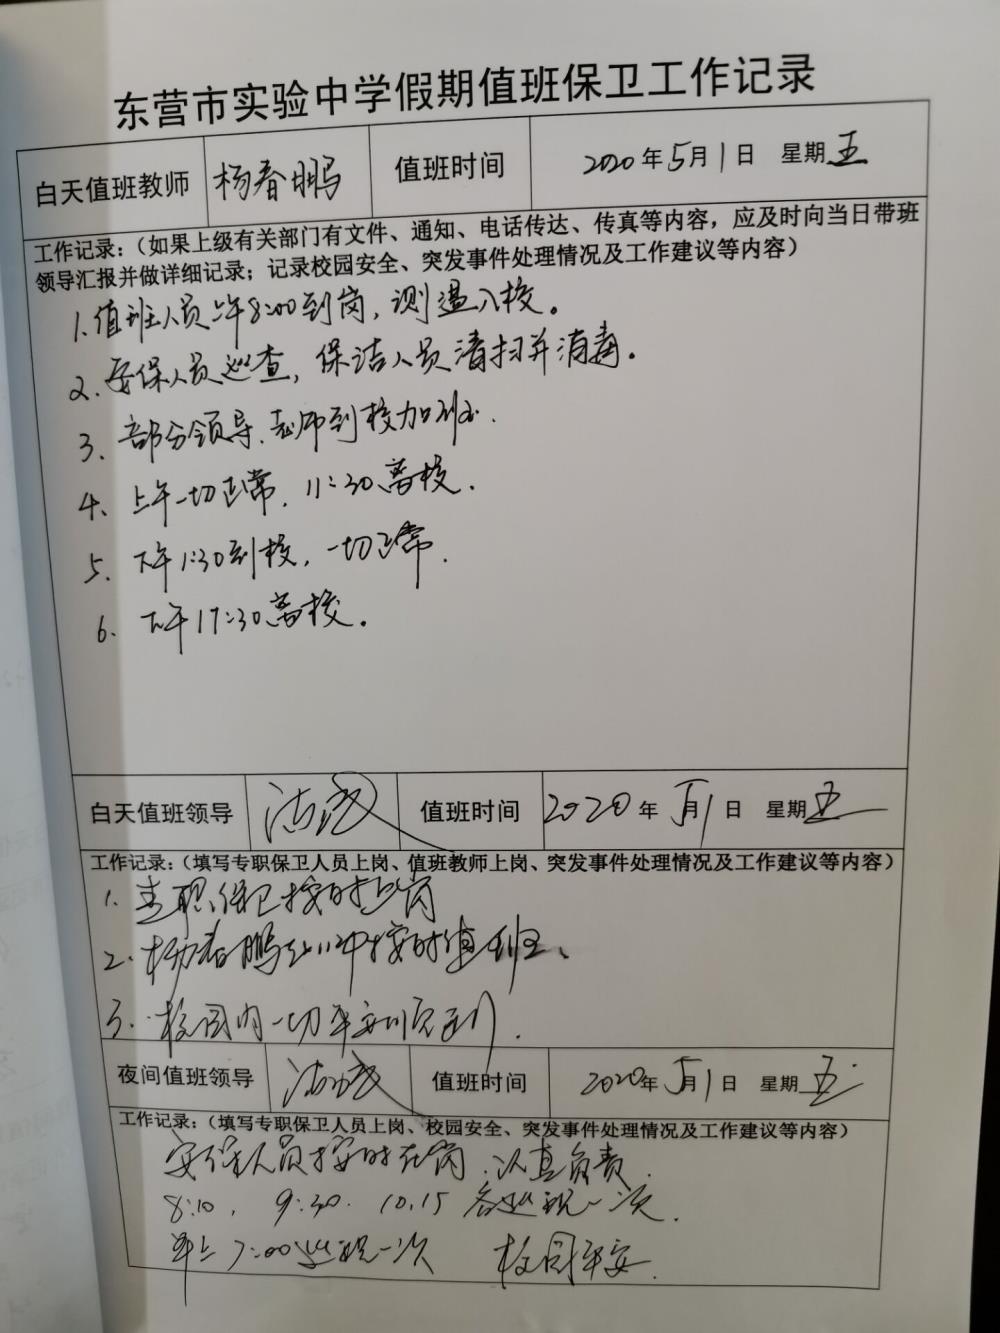 东营市实验中学假期值班保卫工作记录
白天值班教师 杨春鹏 值班时间 2020年5月1日 星期五
工作记录：（如果上级有关部门有文件、通知、电话传达、传真等内容，应及时向当日带班
领导汇报并做详细记录；记录校园安全、突发事件处理情况及工作建议等内容）
1.值班人员上午8:00到岗，测温入校。
2.安保人员巡查，保洁人员清扫并消毒。
3.部分领导、老师到校加班.
4.上午一切正常，11:30离校.
5.下午1:30到校，一切正常.
6.下午17:30离校。
白天值班领导 值班时间 2020年5月1日 星期五
工作记录：（填写专职保卫人员上岗、值班教师上岗、突发事件处理情况及工作建议等内容）
1.专职保卫按时上岗
2.杨春鹏老师按时值班、
3.校园内一切平安顺利.
夜间值班领导 值班时间 2020年5月1日 星期五
工作记录：（填写专职保卫人员上岗、校园安全、突发事件处理情况及工作建议等内容）
安保人员按时在岗、认真负责.
8:10、9:30、10.15各巡视一次.
早上7:00巡视一次 校园平安.